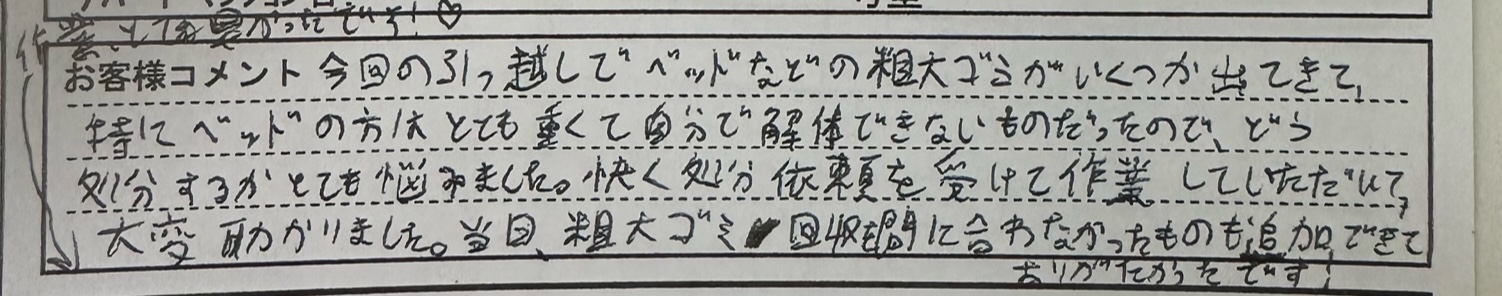 作業とても かったです!♡
お客様コメント 今回の引っ越しでベッドなどの粗大ゴミがいくつか出てきて、
特にベッドの方はとても重くて自分で解体できないものだったので、どう
処分するかとても悩みました。快く処分依頼を受けて作業していただいて、
大変助かりました。当日、粗大ゴミ回収も間に合わなかったものも追加できて
ありがたかったです!